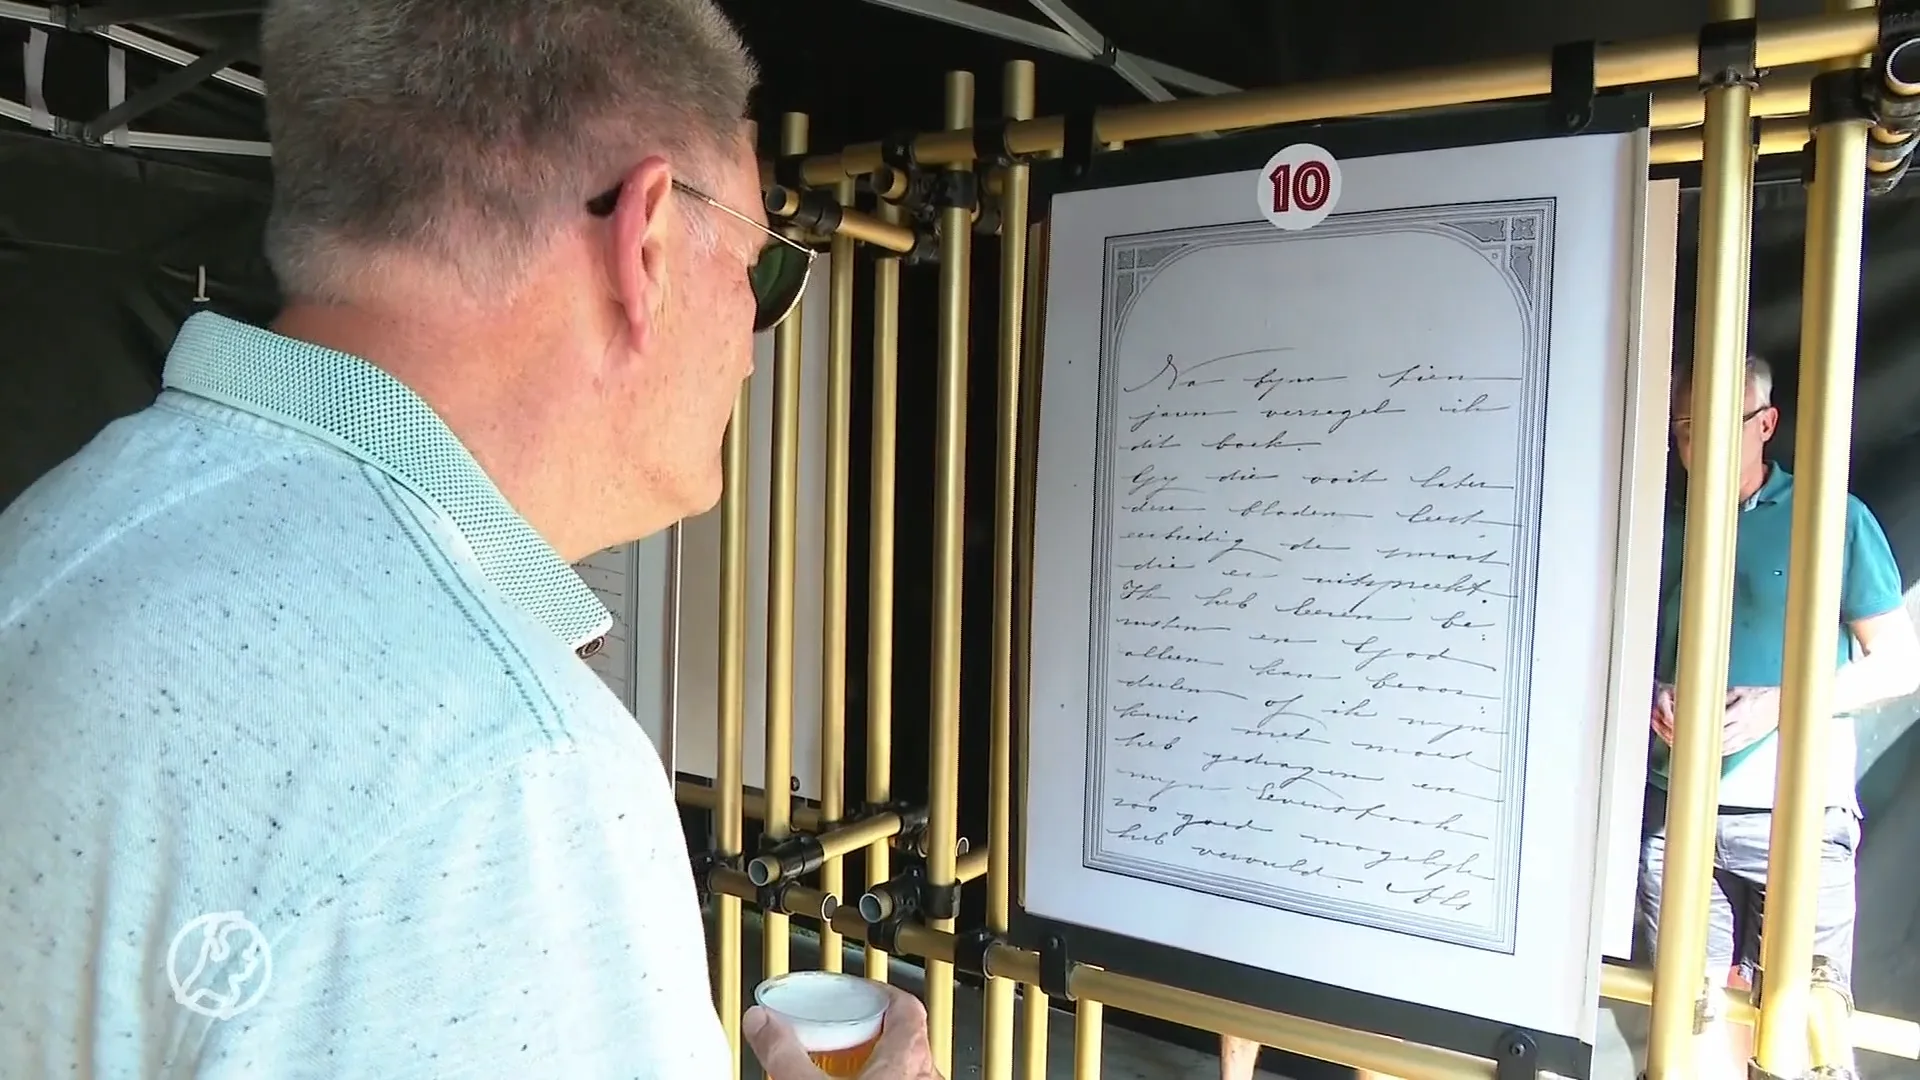 10
Na byna tien
jaren verzegel ik
dit boek.
Gy die ooit later
deze bladen leest
eerbiedig de smart
die er uitspreekt.
Ik heb leeren be:
rusten en God
alleen kan beoor:
deelen of ik myn
kruis met moed
heb gedragen en
myn levenstaak
zoo goed mogelyk
heb vervuld.